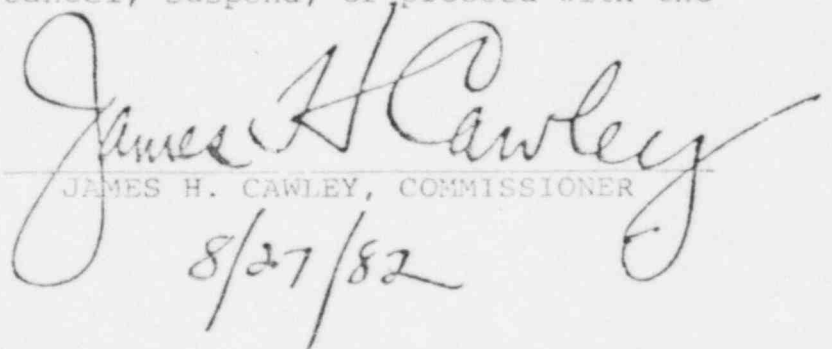 cancel, suspend, or proceed with the
James H Cawley
JAMES H. CAWLEY, COMMISSIONER
8/27/82